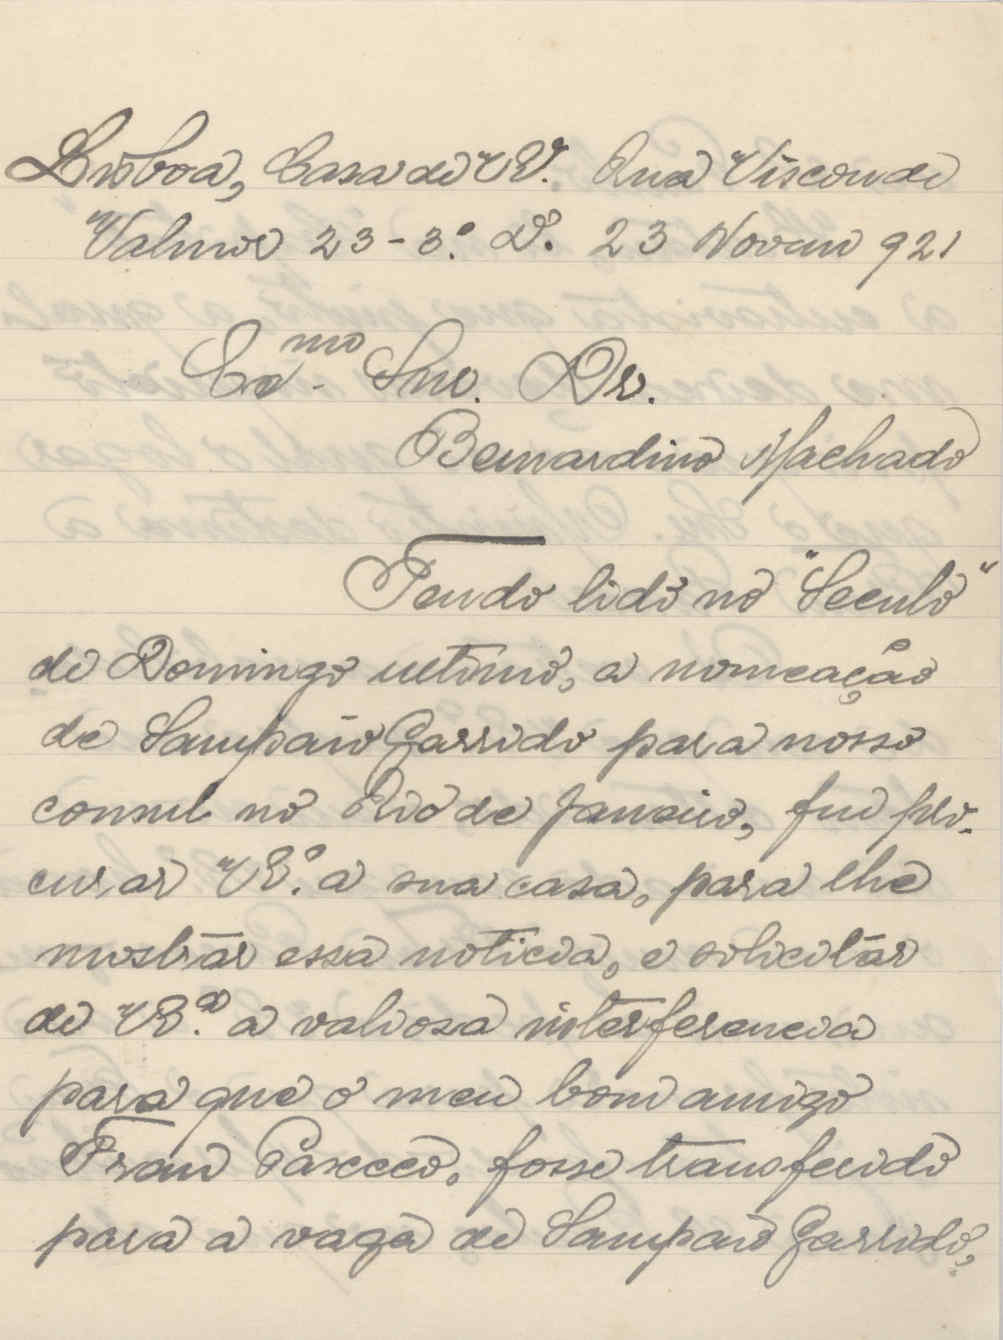 Lisboa, Casa de V. E.ª. Rua Visconde
Valmor 23-3.º D.º. 23 Novem 921
Ex.mo Snr. Dr.
Bernardino Machado
Tendo lido no "Seculo"
de Domingo ultimo, a nomeação
de Sampaio Garrido para nosso
consul no Rio de Janeiro, fui pro-
curar V E.ª a sua casa, para lhe
mostrar essa noticia, e solicitar
de V E.ª a valiosa interferencia
para que o meu bom amigo
Fran Paxeco, fosse transferido
para a vaga de Sampaio Garrido,